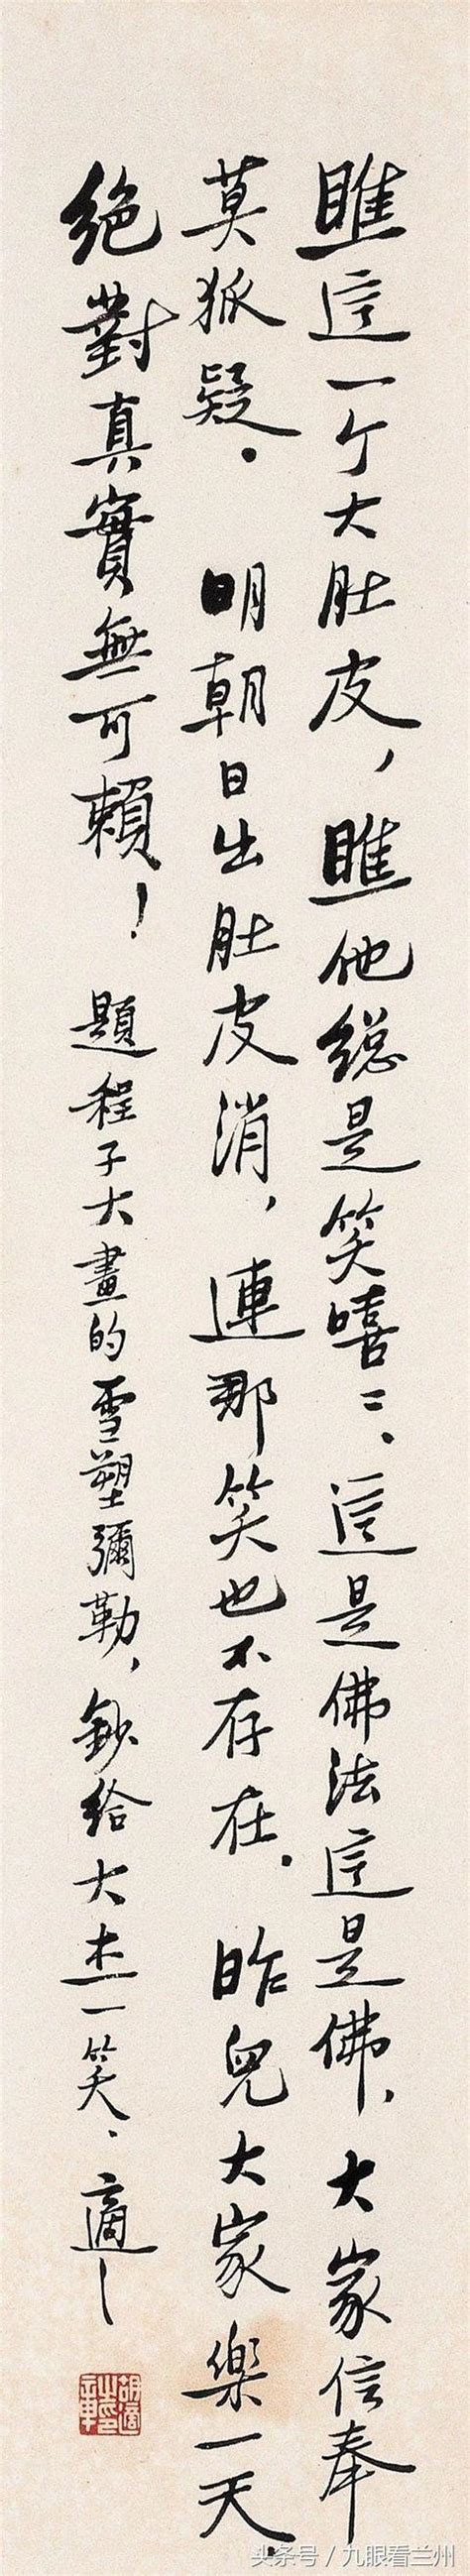 瞧這一个大肚皮，瞧他總是笑嘻〻。這是佛法這是佛，大家信奉
莫狐疑。明朝日出肚皮消，連那笑也不存在。昨兒大家樂一天，
絕對真實無可賴！題程子大畫的雪塑彌勒，鈔給大杰一笑。適
胡適之印章
头条号 / 九眼看兰州